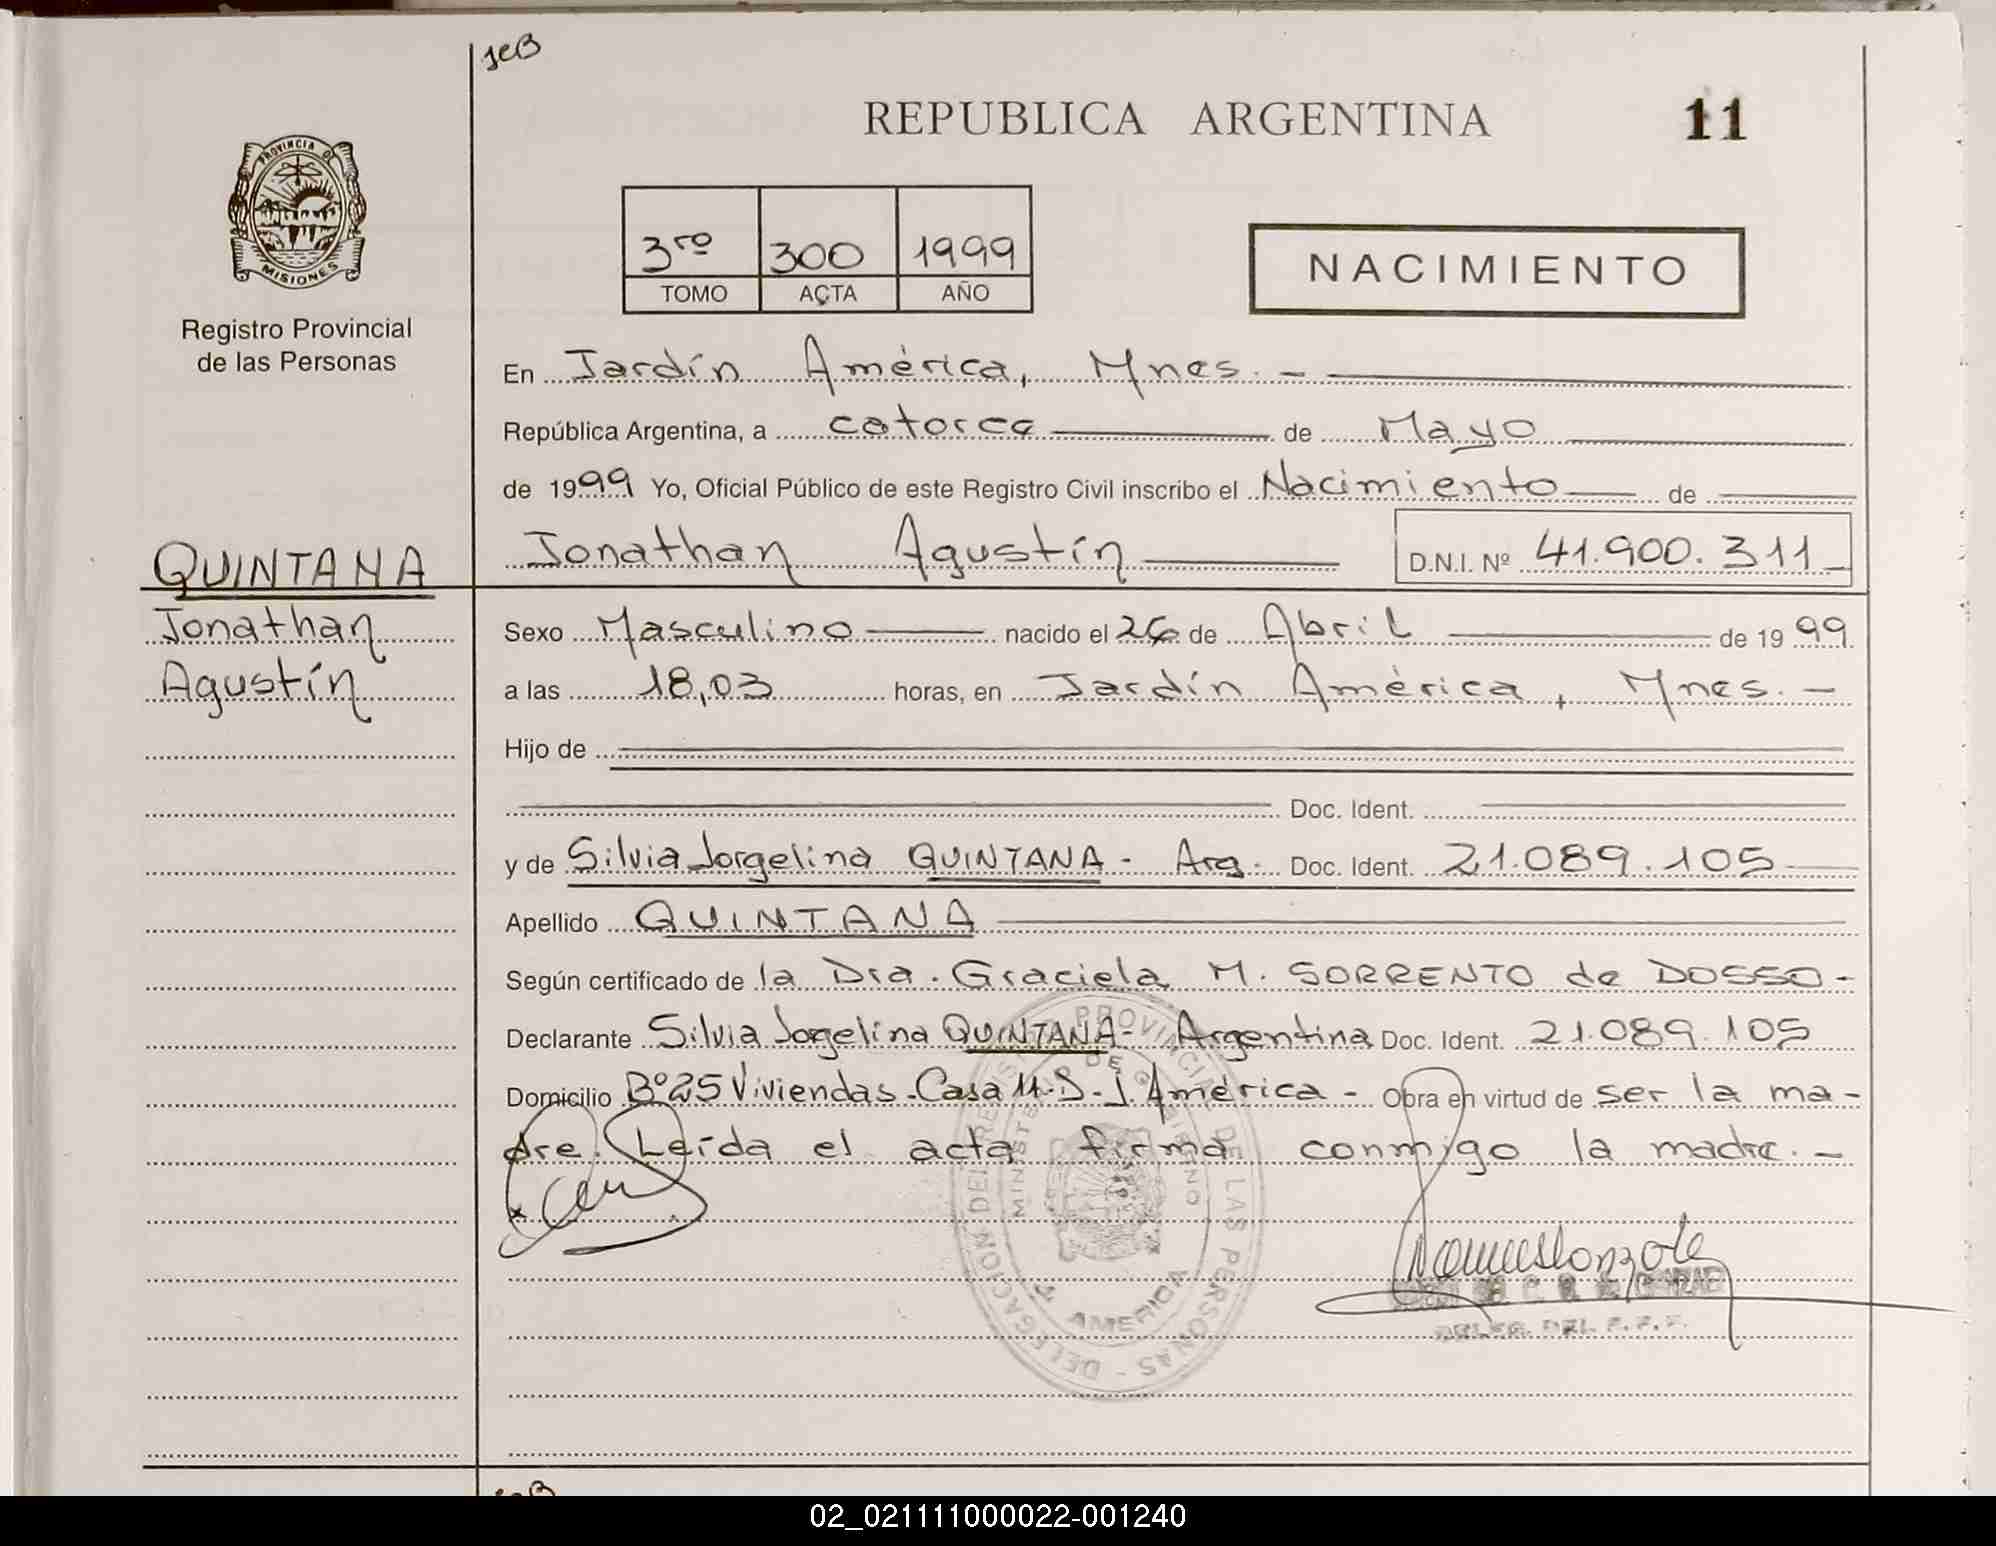 JCB
REPUBLICA ARGENTINA 11
PROVINCIA DE
MISIONES
Registro Provincial
de las Personas
3ro 300 1999
TOMO ACTA AÑO
NACIMIENTO
En Jardín América, Mnes. -
República Argentina, a catorce de Mayo
de 1999 Yo, Oficial Público de este Registro Civil inscribo el Nacimiento de
Jonathan Agustín D.N.I. Nº 41.900.311
QUINTANA
Jonathan
Agustín
Sexo Masculino nacido el 26 de Abril de 1999
a las 18,03 horas, en Jardín América, Mnes. -
Hijo de
Doc. Ident.
y de Silvia Jorgelina QUINTANA - Arg. Doc. Ident. 21.089.105
Apellido QUINTANA
Según certificado de la Dra. Graciela M. SORRENTO de DOSSO -
Declarante Silvia Jorgelina QUINTANA - Argentina Doc. Ident. 21.089.105
Domicilio Bº 25 Viviendas - Casa 11 - J. América - Obra en virtud de ser la ma-
dre. Leída el acta firma conmigo la madre. -
DELEGACION DEL REGISTRO PROVINCIAL DE LAS PERSONAS
MINISTERIO DE GOBIERNO
J. AMERICA
02_021111000022-001240